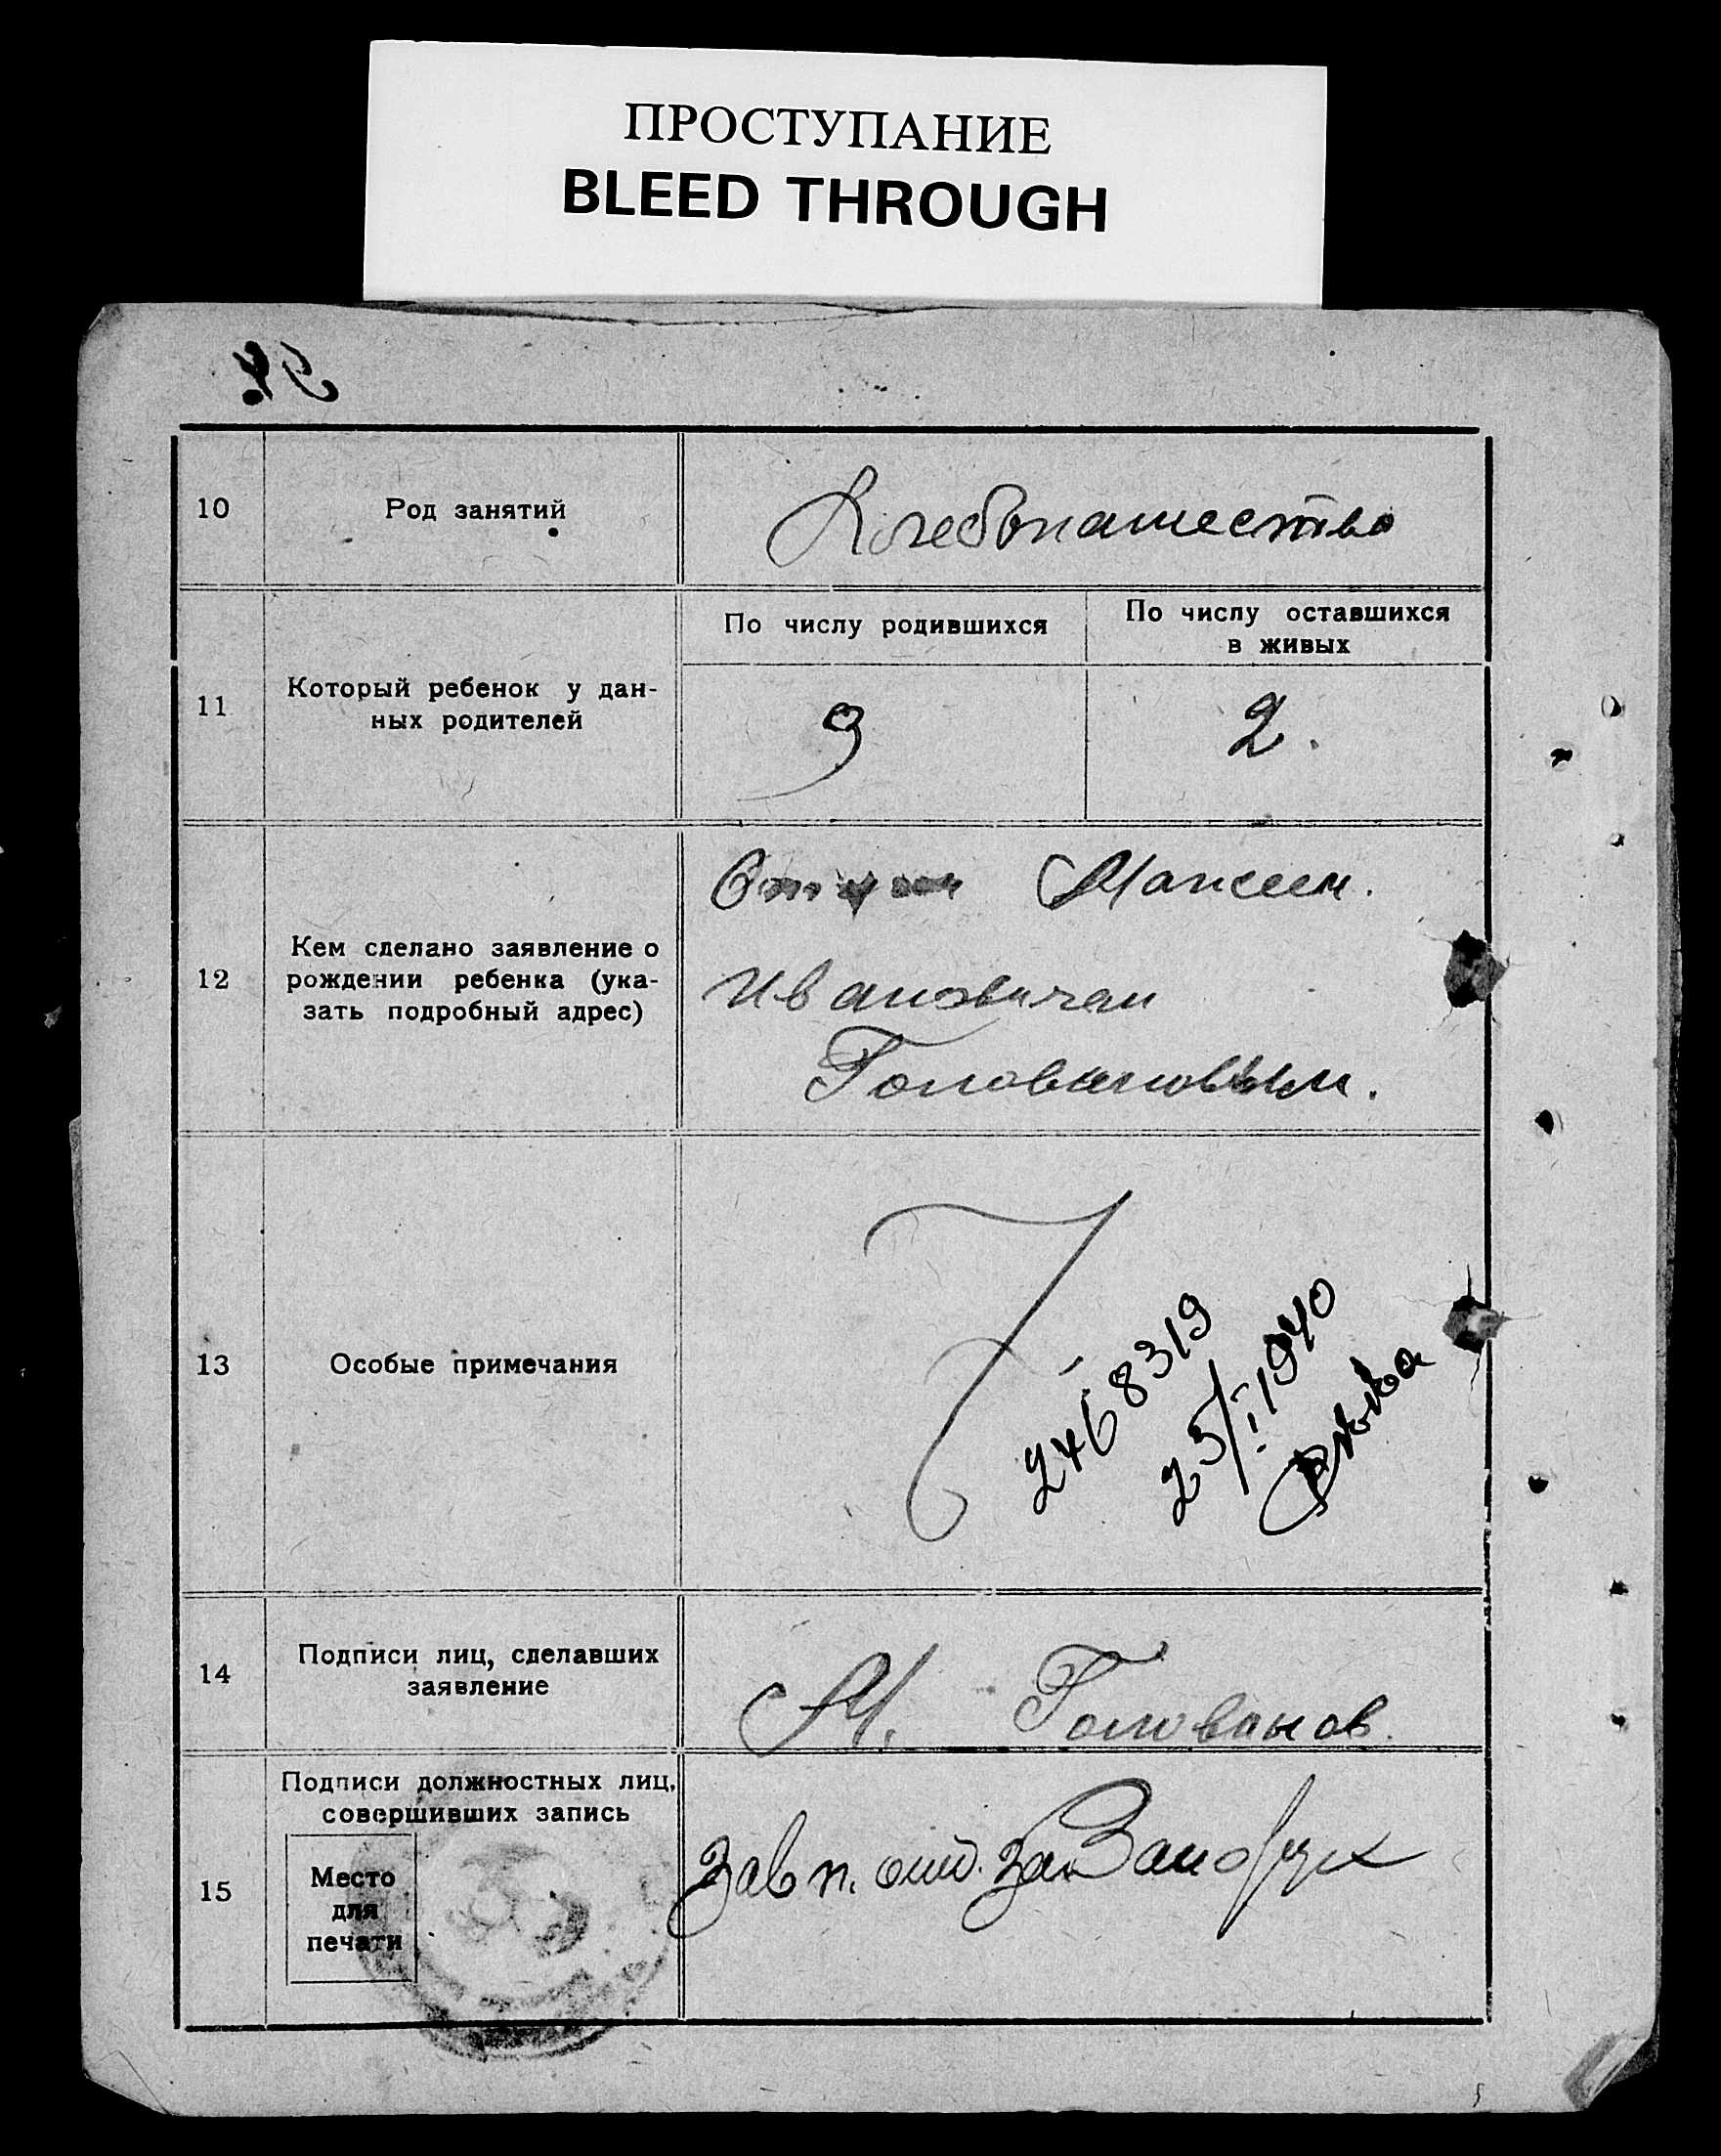 ПРОСТУПАНИЕ
BLEED THROUGH
10
Род занятий
Хлебопашество
11
Который ребенок у дан-
ных родителей
По числу родившихся
По числу оставшихся
в живых
9
2.
12
Кем сделано заявление о
рождении ребенка (ука-
зать подробный адрес)
Отцом Максим.
Ивановичем
Головановым.
13
Особые примечания
2468319
25/I 1940
14
Подписи лиц, сделавших
заявление
М. Голованов.
15
Подписи должностных лиц,
совершивших запись
Место
для
печати
Зав п.